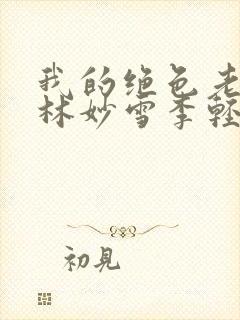 我的绝色老
林妙雪季轻
初見